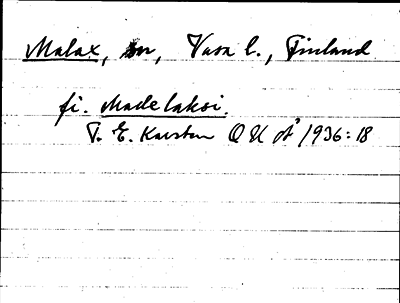 Malax, sn, Vasa l., Finland
fi. Madelaksi.
T. E. Karsten OUÅ 1936:18